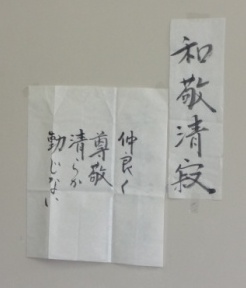 和敬清寂
仲良く
尊敬
清らか
動じない